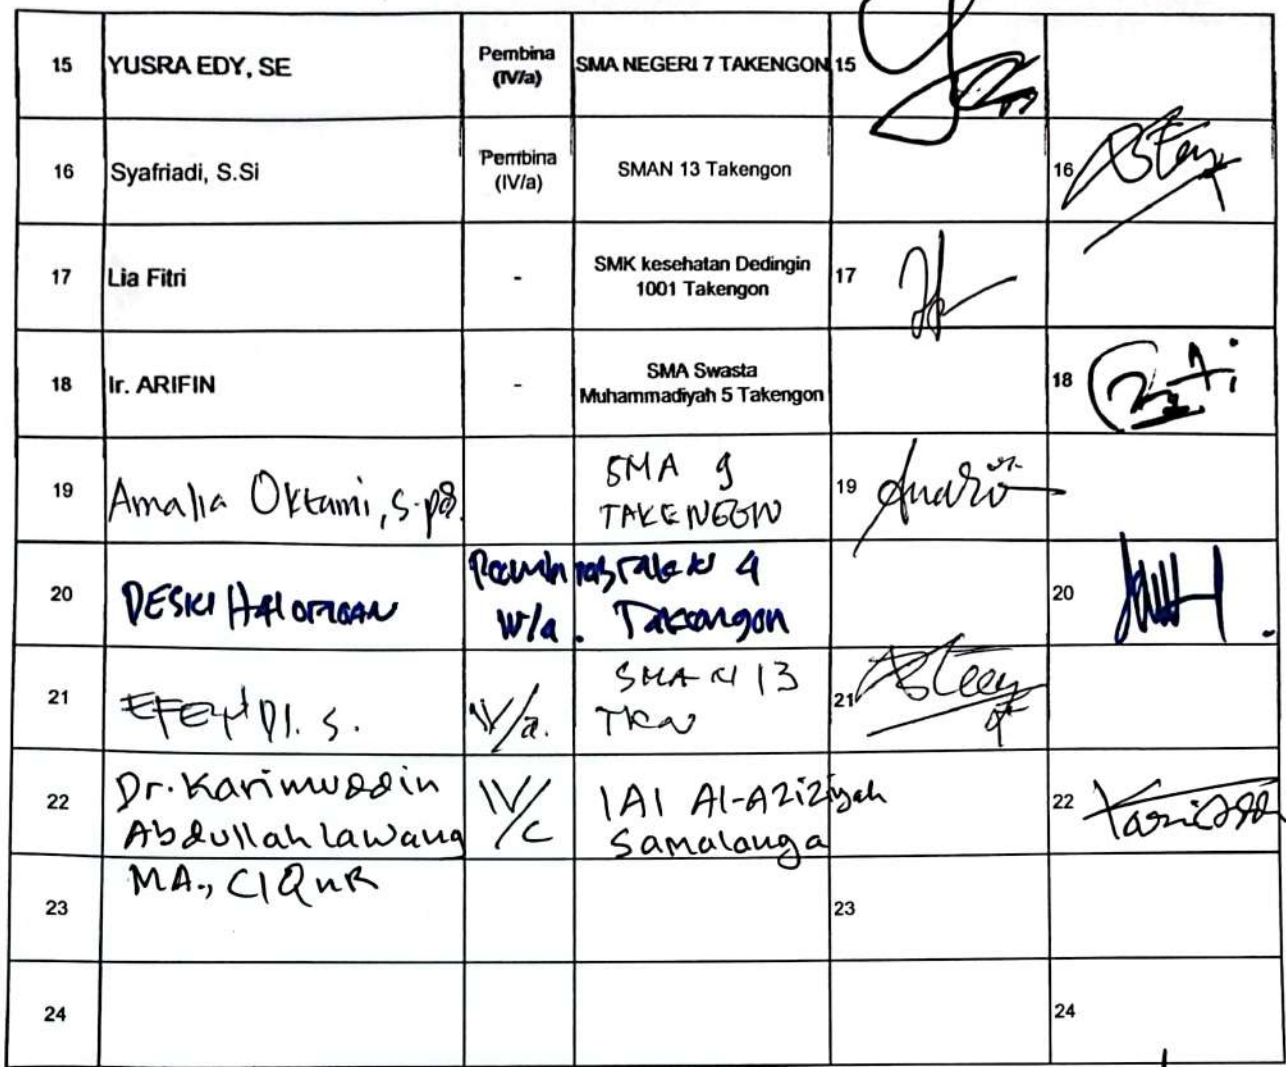 15 YUSRA EDY, SE Pembina (IV/a) SMA NEGERI 7 TAKENGON 15
16 Syafriadi, S.Si Pembina (IV/a) SMAN 13 Takengon 16
17 Lia Fitri - SMK kesehatan Dedingin 1001 Takengon 17
18 Ir. ARIFIN - SMA Swasta Muhammadiyah 5 Takengon 18
19 Amalia Oktami, S.pd. SMA 9 TAKENGON 19
20 DESKI 4 IV/a. Takengon 20
21 IV/a. SMAN 13 TKN 21
22 Dr. Karimuddin IV/c IAI Al-Aziziyah 22
Abdullah Lawang Samalanga
MA., CIQnR
23 23
24 24